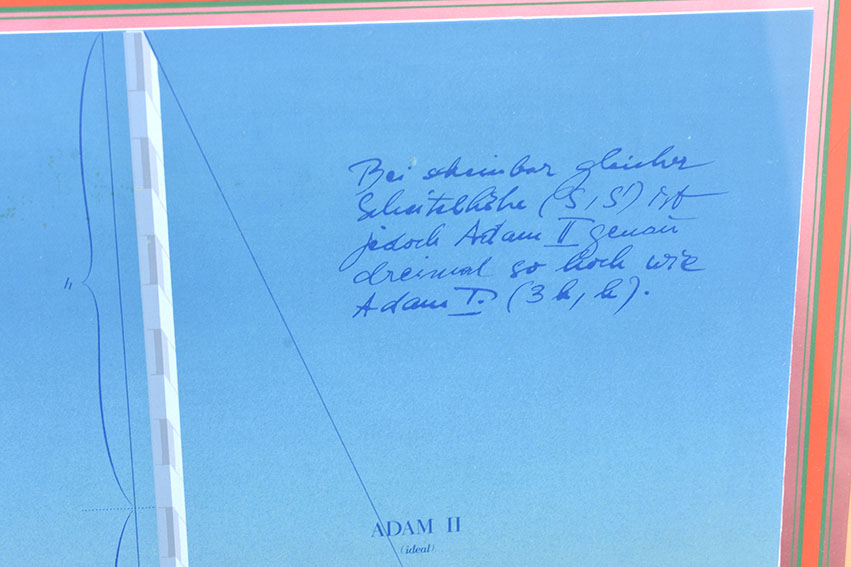 Bei scheinbar gleicher
Scheitelhöhe (S, S') ist
jedoch Adam II genau
dreimal so hoch wie
Adam I. (3h, h).
h
ADAM II
(ideal)